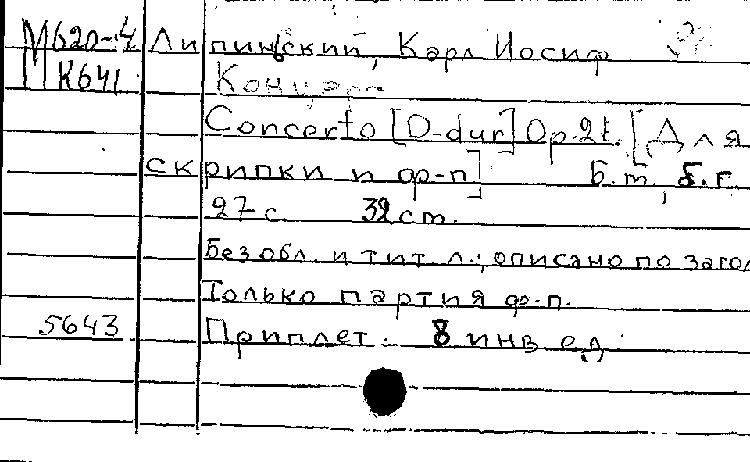 М620-4 Липинский, Карл Иосиф
МК641 Концерт
Concerto [D-dur] Op. 21. [Для
скрипки и ф-п] Б.т., б.г.
27 с. 32 ст.
Без обл. и тит. л.; описано по загол
Только партия ф-п.
5643 Приплет. 8 инв ед